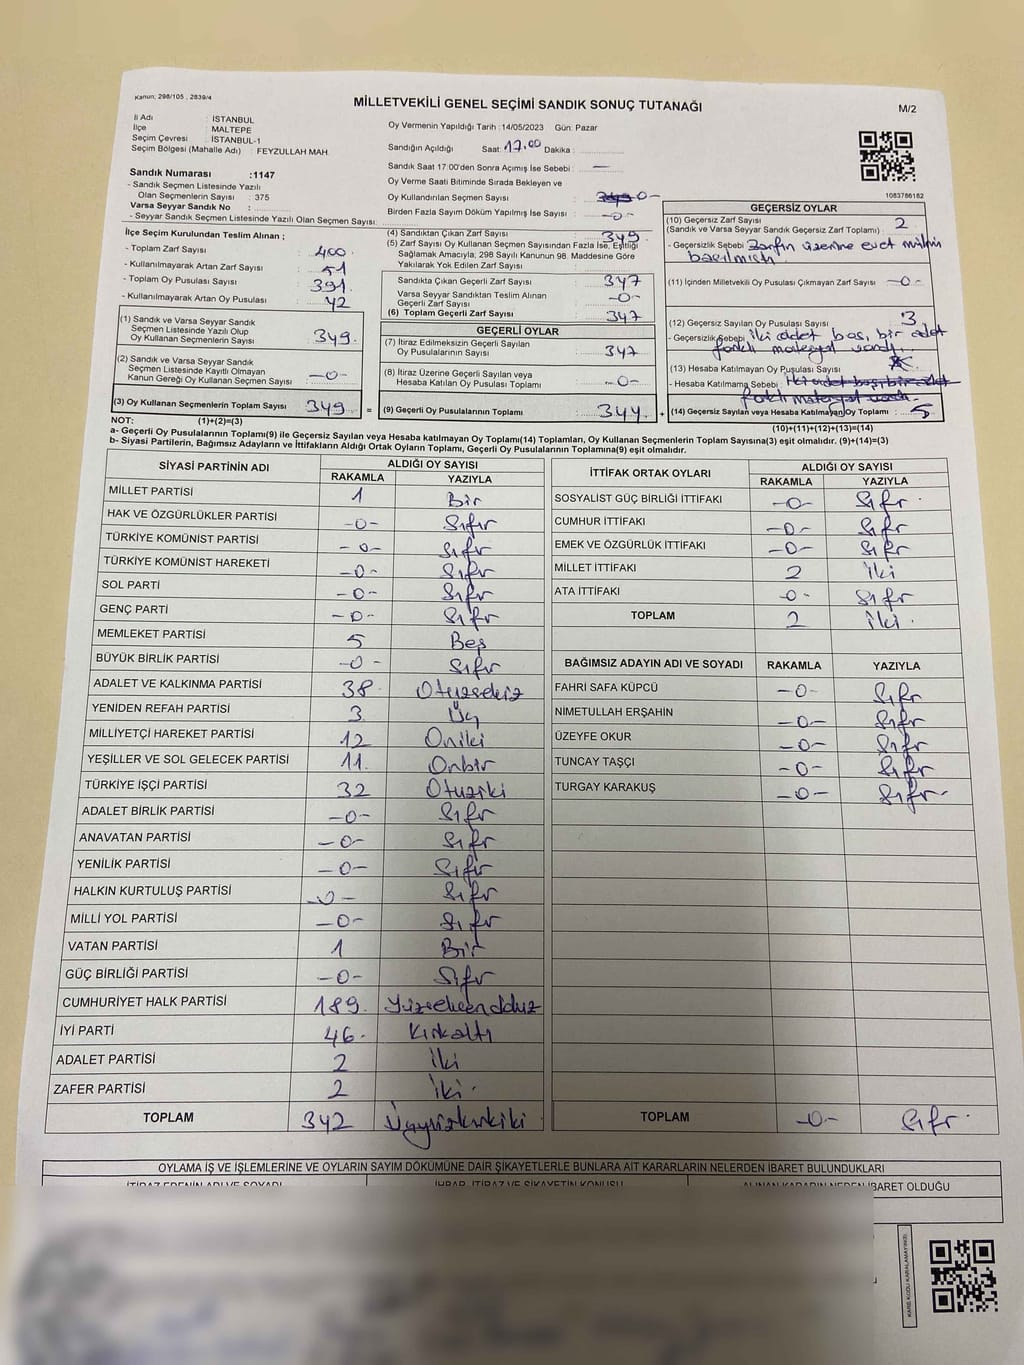 Kanun; 298/105 , 2839/4
MİLLETVEKİLİ GENEL SEÇİMİ SANDIK SONUÇ TUTANAĞI
M/2
İl Adı : İSTANBUL
İlçe : MALTEPE
Seçim Çevresi : İSTANBUL-1
Seçim Bölgesi (Mahalle Adı) : FEYZULLAH MAH.
Sandık Numarası :1147
- Sandık Seçmen Listesinde Yazılı
Olan Seçmenlerin Sayısı : 375
Varsa Seyyar Sandık No :
- Seyyar Sandık Seçmen Listesinde Yazılı Olan Seçmen Sayısı:
Oy Vermenin Yapıldığı Tarih :14/05/2023 Gün: Pazar
Sandığın Açıldığı Saat: 17.00 Dakika :
Sandık Saat 17:00'den Sonra Açımış İse Sebebi : —
Oy Verme Saati Bitiminde Sırada Bekleyen ve
Oy Kullandırılan Seçmen Sayısı : 0-
Birden Fazla Sayım Döküm Yapılmış İse Sayısı : -0-
1083786182
İlçe Seçim Kurulundan Teslim Alınan ;
- Toplam Zarf Sayısı : 400
- Kullanılmayarak Artan Zarf Sayısı : 51
- Toplam Oy Pusulası Sayısı : 391
- Kullanılmayarak Artan Oy Pusulası : 42
(1) Sandık ve Varsa Seyyar Sandık
Seçmen Listesinde Yazılı Olup
Oy Kullanan Seçmenlerin Sayısı : 349
(2) Sandık ve Varsa Seyyar Sandık
Seçmen Listesinde Kayıtlı Olmayan
Kanun Gereği Oy Kullanan Seçmen Sayısı : -0-
(3) Oy Kullanan Seçmenlerin Toplam Sayısı 349 =
(4) Sandıktan Çıkan Zarf Sayısı : 349
(5) Zarf Sayısı Oy Kullanan Seçmen Sayısından Fazla İse, Eşitliği
Sağlamak Amacıyla, 298 Sayılı Kanunun 98. Maddesine Göre
Yakılarak Yok Edilen Zarf Sayısı :
Sandıkta Çıkan Geçerli Zarf Sayısı : 347
Varsa Seyyar Sandıktan Teslim Alınan
Geçerli Zarf Sayısı : -0-
(6) Toplam Geçerli Zarf Sayısı : 347
GEÇERLİ OYLAR
(7) İtiraz Edilmeksizin Geçerli Sayılan
Oy Pusulalarının Sayısı : 347
(8) İtiraz Üzerine Geçerli Sayılan veya
Hesaba Katılan Oy Pusulası Toplamı : -0-
(9) Geçerli Oy Pusulalarının Toplamı : 344 +
GEÇERSİZ OYLAR
(10) Geçersiz Zarf Sayısı : 2
(Sandık ve Varsa Seyyar Sandık Geçersiz Zarf Toplamı)
- Geçersizlik Sebebi : Zarfın üzerine evet mührü
basılmıştı.
(11) İçinden Milletvekili Oy Pusulası Çıkmayan Zarf Sayısı : -0-
(12) Geçersiz Sayılan Oy Pusulası Sayısı : 3
- Geçersizlik Sebebi : iki adet boş, bir adet
farklı materyal vardı.
(13) Hesaba Katılmayan Oy Pusulası Sayısı :
- Hesaba Katılmama Sebebi : iki adet boş bir adet
farklı materyal vardı.
(14) Geçersiz Sayılan veya Hesaba Katılmayan Oy Toplamı : 5
NOT: (1)+(2)=(3)
(10)+(11)+(12)+(13)=(14)
a- Geçerli Oy Pusulalarının Toplamı(9) ile Geçersiz Sayılan veya Hesaba katılmayan Oy Toplamı(14) Toplamları, Oy Kullanan Seçmenlerin Toplam Sayısına(3) eşit olmalıdır. (9)+(14)=(3)
b- Siyasi Partilerin, Bağımsız Adayların ve İttifakların Aldığı Ortak Oyların Toplamı, Geçerli Oy Pusulalarının Toplamına(9) eşit olmalıdır.
SİYASİ PARTİNİN ADI ALDIĞI OY SAYISI
RAKAMLA YAZIYLA
MİLLET PARTİSİ 1 Bir
HAK VE ÖZGÜRLÜKLER PARTİSİ -0- Sıfır
TÜRKİYE KOMÜNİST PARTİSİ -0- Sıfr
TÜRKİYE KOMÜNİST HAREKETİ -0- Sıfr
SOL PARTİ -0- Sıfr
GENÇ PARTİ -0- Sıfr
MEMLEKET PARTİSİ 5 Beş
BÜYÜK BİRLİK PARTİSİ -0- Sıfır
ADALET VE KALKINMA PARTİSİ 38 Otuzsekiz
YENİDEN REFAH PARTİSİ 3 Üç
MİLLİYETÇİ HAREKET PARTİSİ 12 Oniki
YEŞİLLER VE SOL GELECEK PARTİSİ 11 Onbir
TÜRKİYE İŞÇİ PARTİSİ 32 Otuziki
ADALET BİRLİK PARTİSİ -0- Sıfr
ANAVATAN PARTİSİ -0- Sıfr
YENİLİK PARTİSİ -0- Sıfr
HALKIN KURTULUŞ PARTİSİ -0- Sıfr
MİLLİ YOL PARTİSİ -0- Sıfr
VATAN PARTİSİ 1 Bir
GÜÇ BİRLİĞİ PARTİSİ -0- Sıfr
CUMHURİYET HALK PARTİSİ 189 Yüzseksendokuz
İYİ PARTİ 46 Kırkaltı
ADALET PARTİSİ 2 İki
ZAFER PARTİSİ 2 İki
TOPLAM 342 Üçyüzkırkiki
İTTİFAK ORTAK OYLARI ALDIĞI OY SAYISI
RAKAMLA YAZIYLA
SOSYALİST GÜÇ BİRLİĞİ İTTİFAKI -0- Sıfr
CUMHUR İTTİFAKI -0- Sıfr
EMEK VE ÖZGÜRLÜK İTTİFAKI -0- Sıfr
MİLLET İTTİFAKI 2 İki
ATA İTTİFAKI -0- Sıfr
TOPLAM 2 İki
BAĞIMSIZ ADAYIN ADI VE SOYADI RAKAMLA YAZIYLA
FAHRİ SAFA KÜPCÜ -0- Sıfr
NİMETULLAH ERŞAHİN -0- Sıfr
ÜZEYFE OKUR -0- Sıfr
TUNCAY TAŞÇI -0- Sıfr
TURGAY KARAKUŞ -0- Sıfr
TOPLAM -0- Sıfr
OYLAMA İŞ VE İŞLEMLERİNE VE OYLARIN SAYIM DÖKÜMÜNE DAİR ŞİKAYETLERLE BUNLARA AİT KARARLARIN NELERDEN İBARET BULUNDUKLARI
İTİRAZ EDENİN ADI VE SOYADI İHBAR, İTİRAZ VE ŞİKAYETİN KONUSU ALINAN KARARIN NEDEN İBARET OLDUĞU
KARE KODU KARALAMAYINIZ!